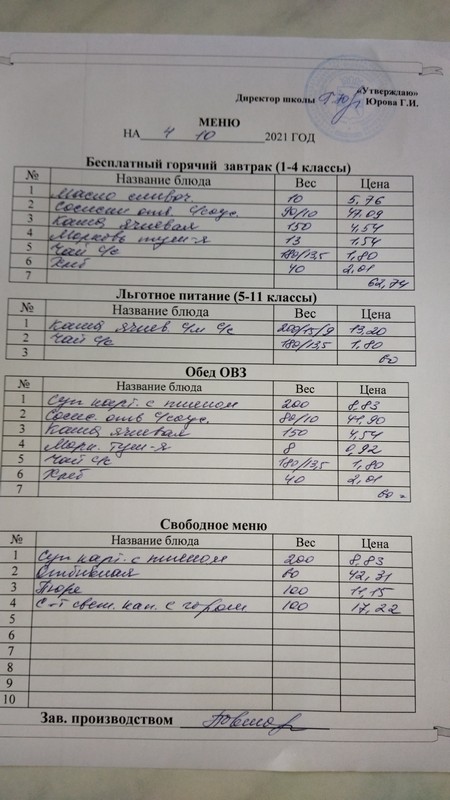 «Утверждаю»
Директор школы Юрова Г.И.
МЕНЮ
НА 4 10 2021 ГОД
Бесплатный горячий завтрак (1-4 классы)
№ Название блюда Вес Цена
1 Масло сливоч. 10 5,76
2 Сосиски отв. с/соус. 90/10 47.09
3 Каша ячневая 150 4,54
4 Морковь туш-я 13 1.54
5 Чай с/с 180/13,5 1,80
6 Хлеб 40 2,01
7 62,74
Льготное питание (5-11 классы)
№ Название блюда Вес Цена
1 Каша ячнев. с/м с/с 200/15/9 13,20
2 Чай с/с 180/13,5 1,80
3
Обед ОВЗ
№ Название блюда Вес Цена
1 Суп карт. с пшеном 200 8,83
2 Сосис. отв с/соус. 80/10 41,90
3 Каша ячневая 150 4,54
4 Морк. туш-я 8 0,92
5 Чай с/с 180/13,5 1,80
6 Хлеб 40 2,01
7 60 =
Свободное меню
№ Название блюда Вес Цена
1 Суп карт. с пшеном 200 8,83
2 Отбивная 60 42,31
3 Пюре 100 11,15
4 С-т свеж. кап. с гором 100 17,22
5
6
7
8
9
10
Зав. производством